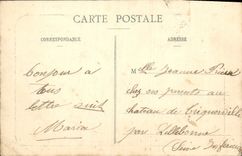 CARTE POSTALE
CORRESPONDANCE
ADRESSE
Bonjour à
tous
lettre suit
Maria
Mlle Jeanne
chez ses parents au
chateau de
par Lillebonne
Seine Inférieure